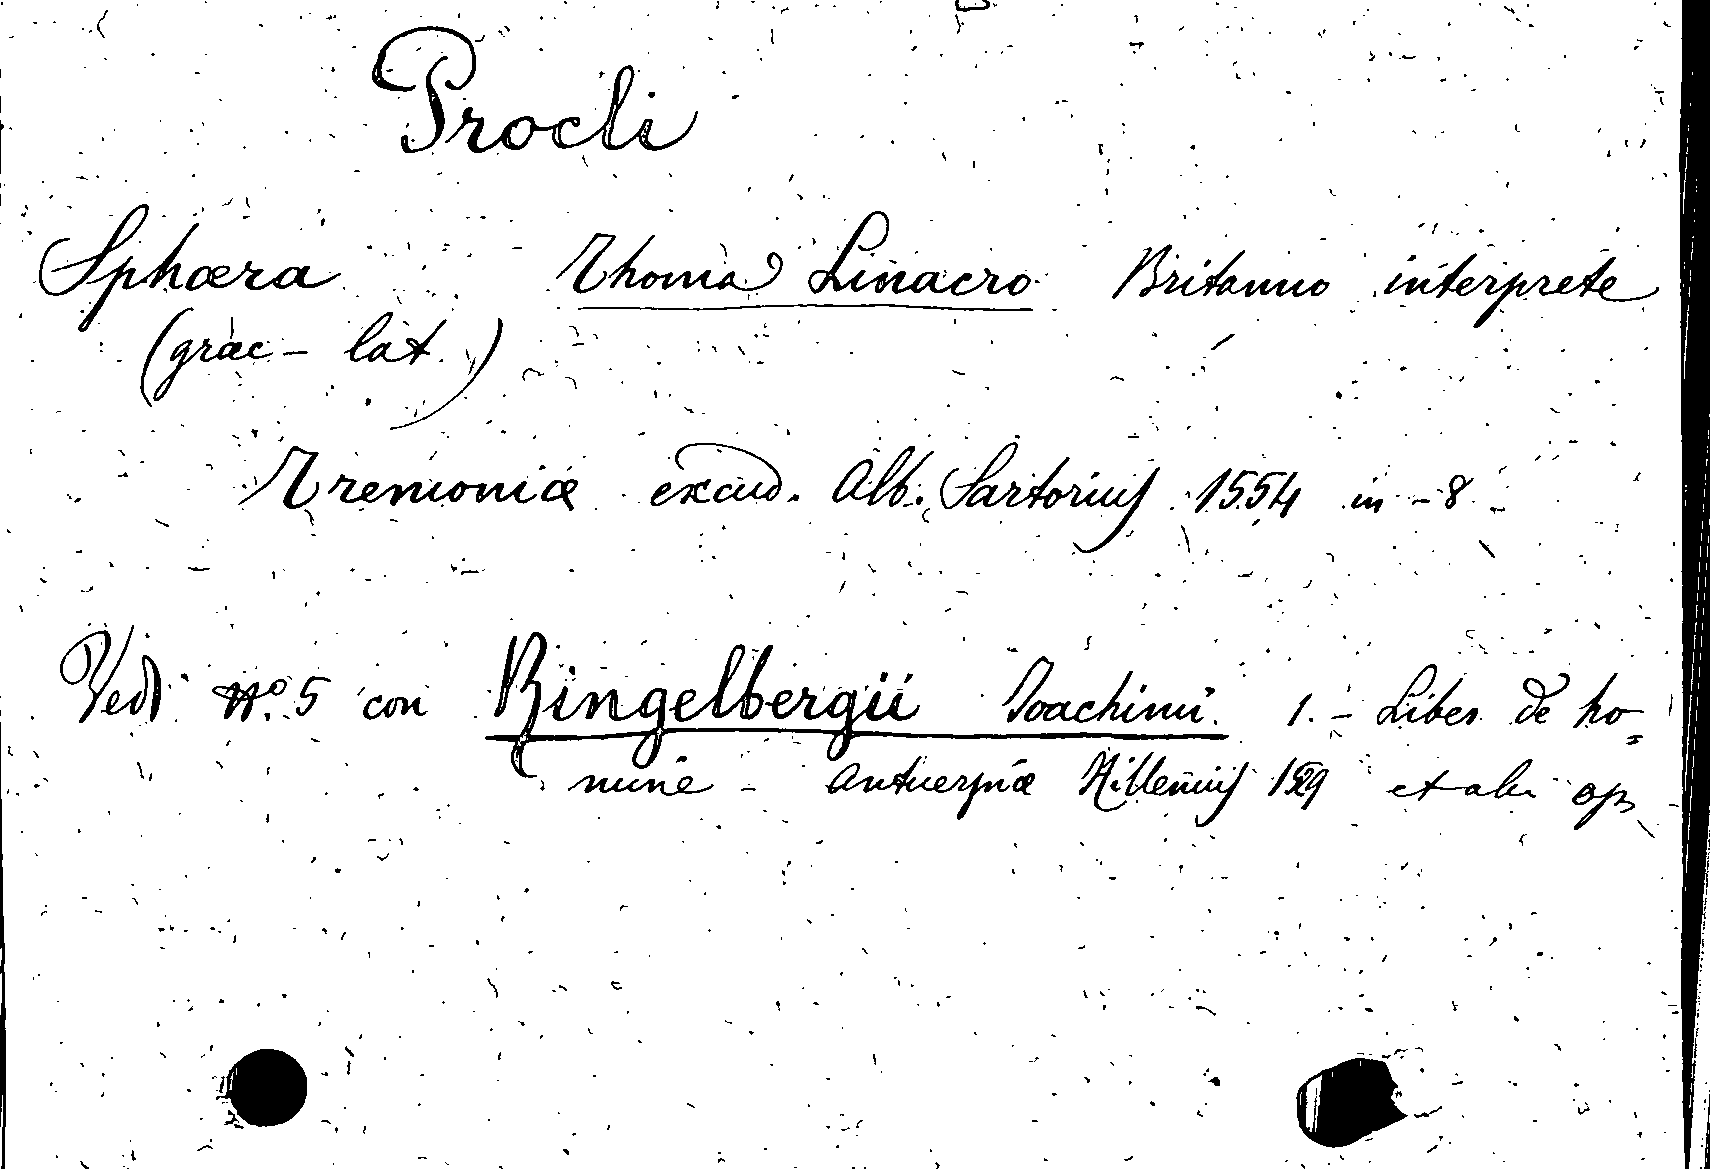 Procli
Sphæra Thoma Linacro Britanno interprete
(græc - lat.)
Tremoniæ excud. Alb. Sartorius 1554 in - 8 -
Vedi Nº. 5 con Ringelbergii Joachimi 1. - Liber de ho=
mine - Antuerpiæ Hillenius 1529 et alii op